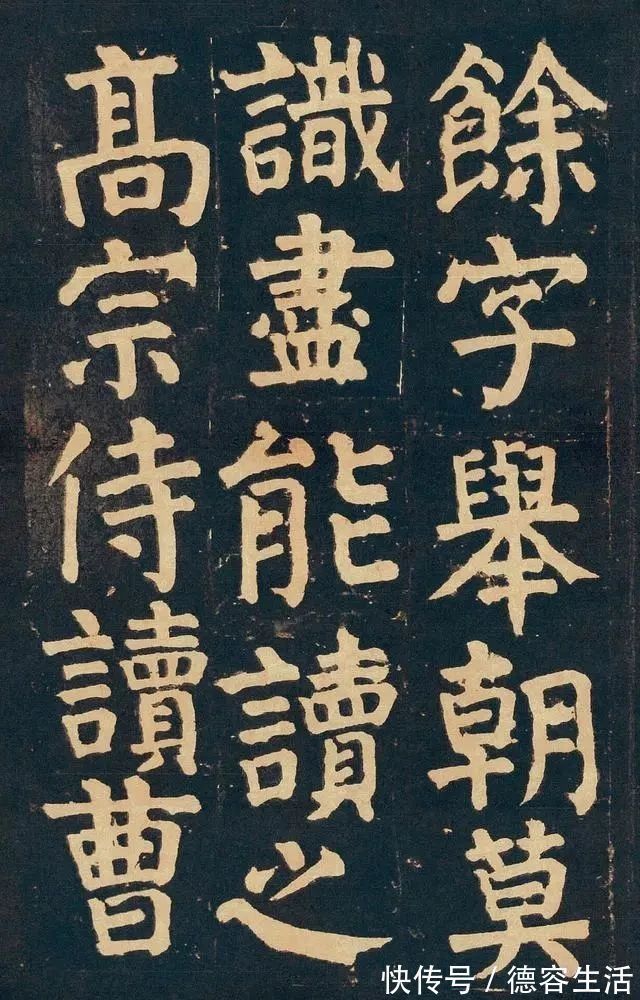 餘字舉朝莫
識盡能讀之
髙宗侍讀曹
快传号/德容生活